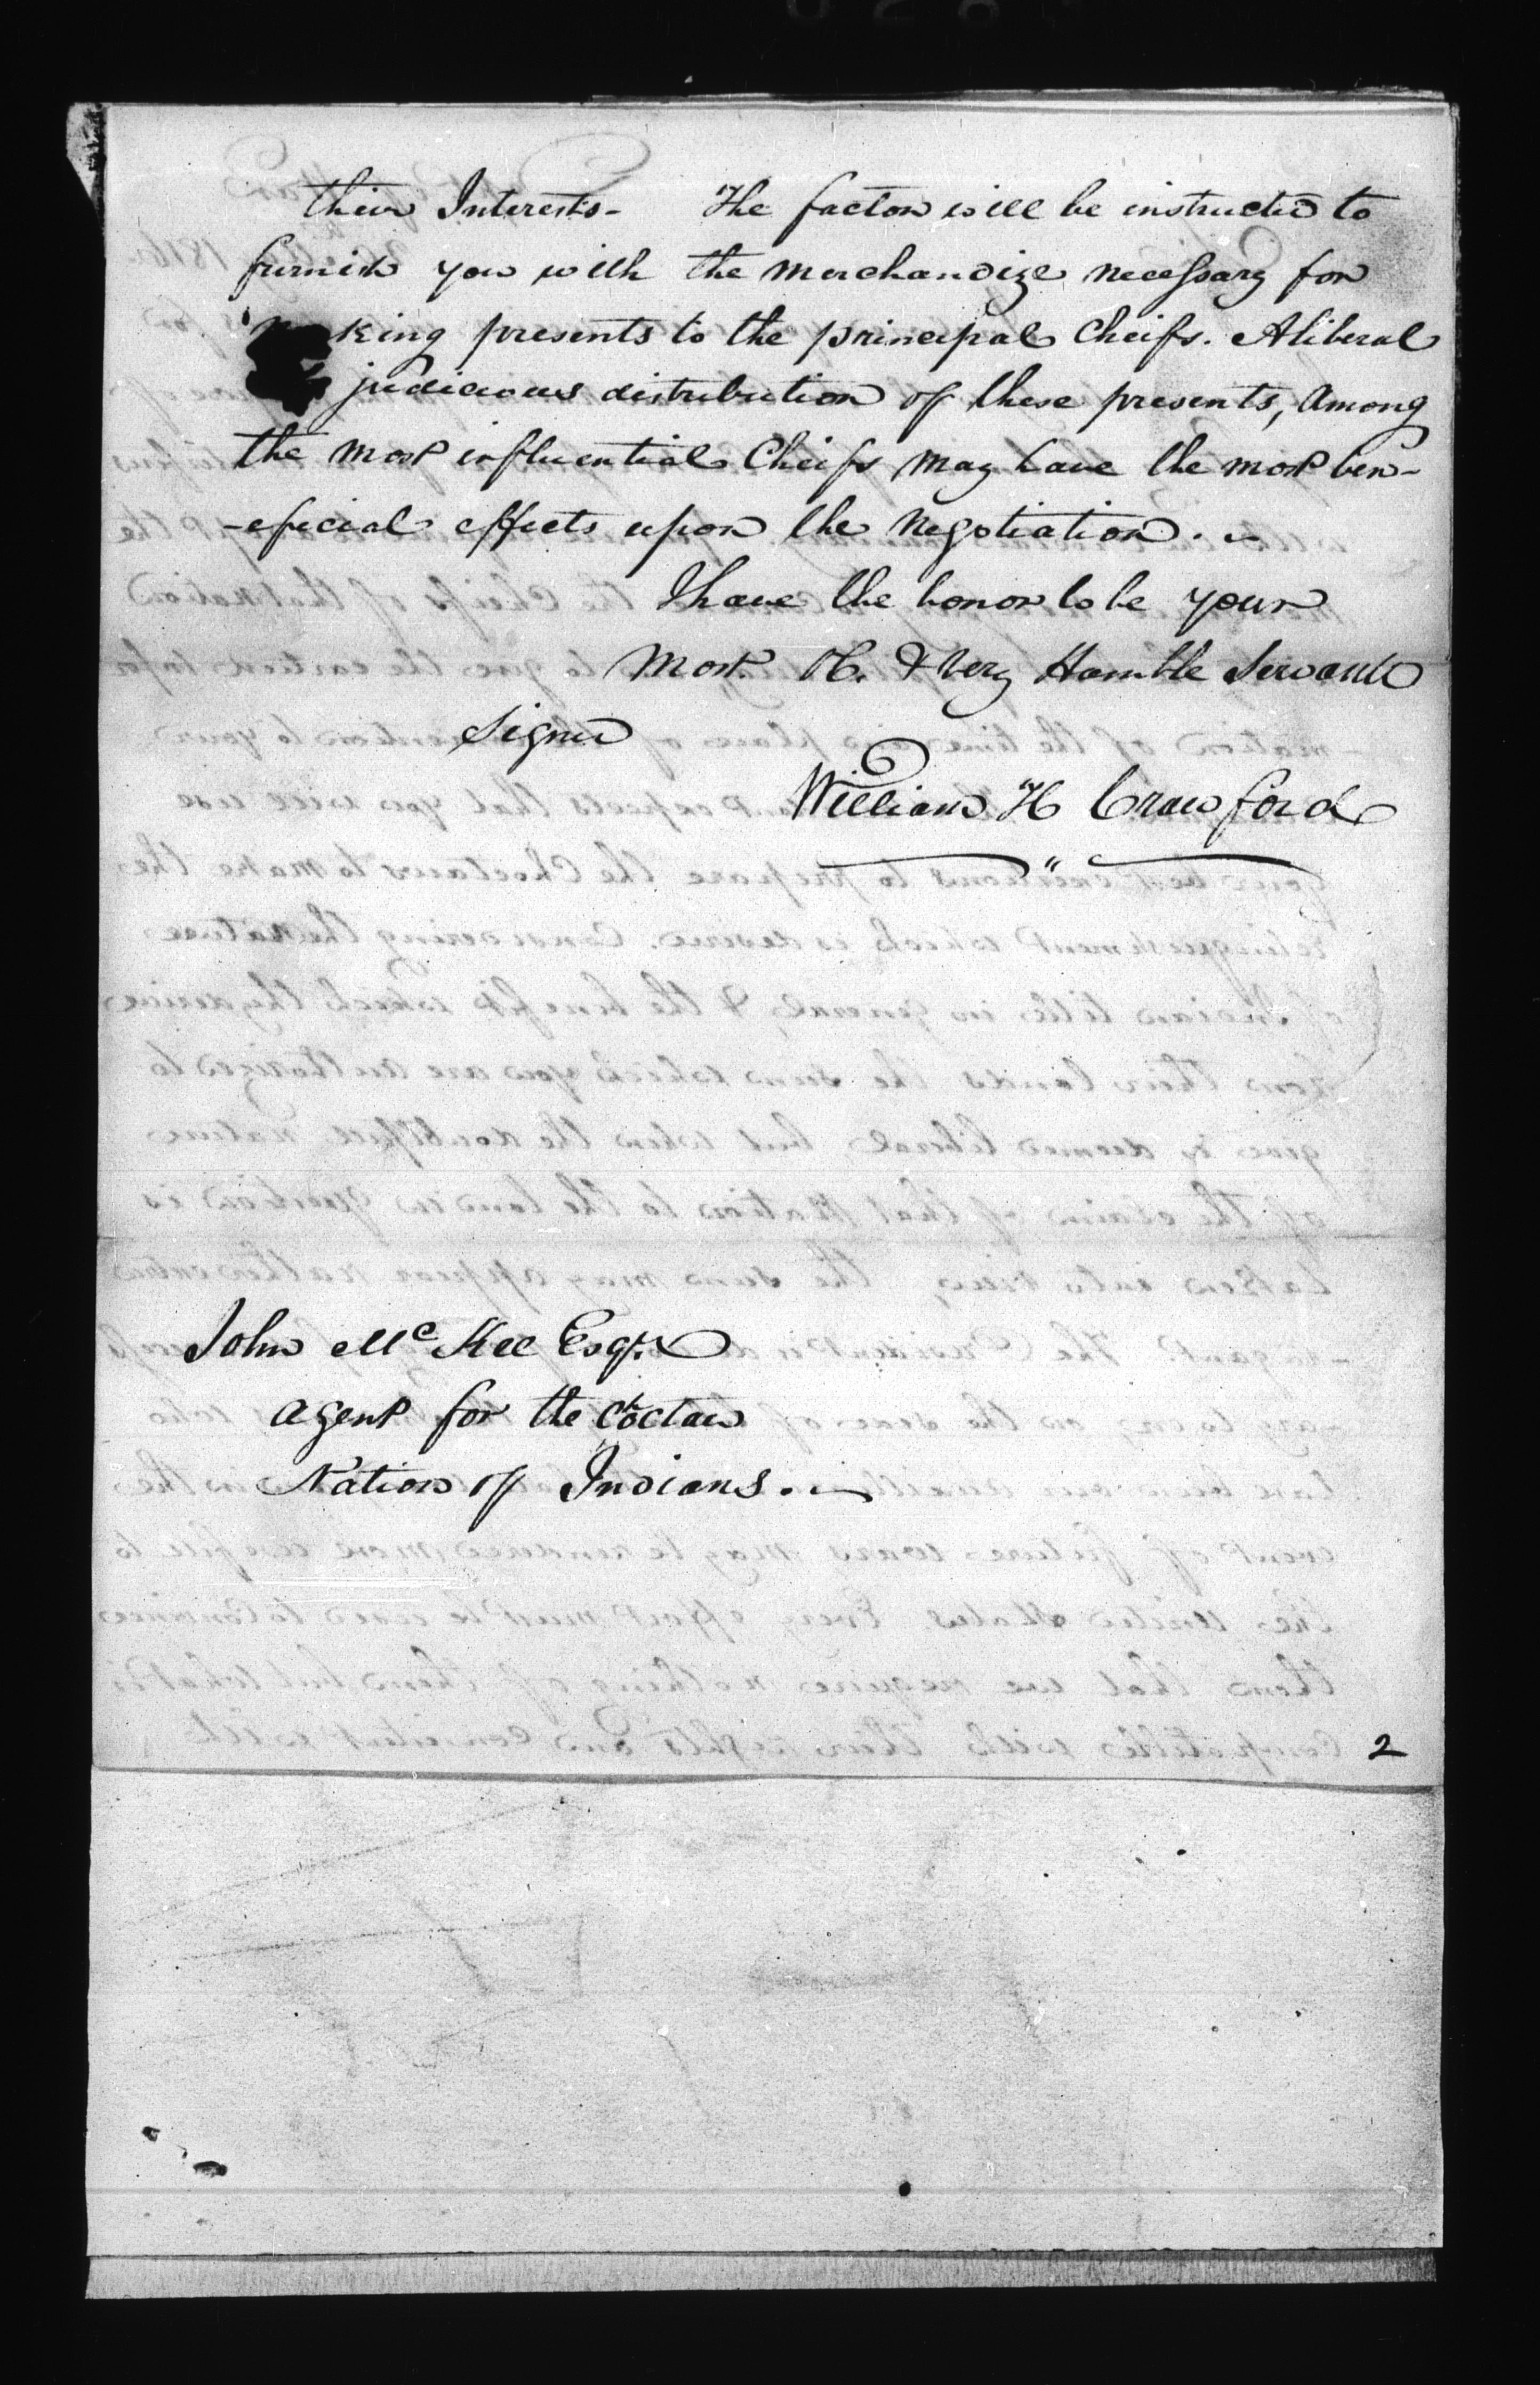 their Interests- The factor will be instructed to
furnish you with the merchandize necessary for
making presents to the principal Cheifs. A liberal
judicious distribution of these presents, among
the most influential Cheifs may have the most ben-
-eficial effects upon the Negotiation.
I have the honor to be your
most. Ob. & very Humble Servant
Signed
William H Crawford
John McKee Esqr.
agent for the Choctaw
Nation of Indians.
2